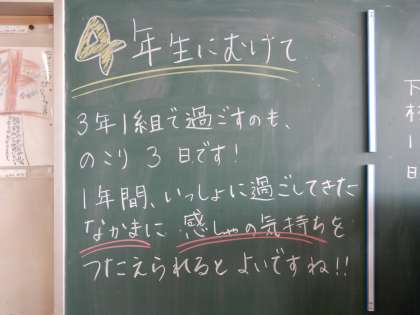 4年生にむけて
3年1組で過ごすのも、
のこり 3 日です!
1年間、いっしょに過ごしてきた
なかまに 感しゃの気持ちを
つたえられるとよいですね!!
下
1
日